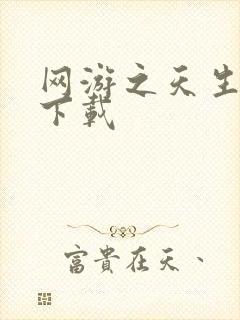 网游之天生
下載
富貴在天、